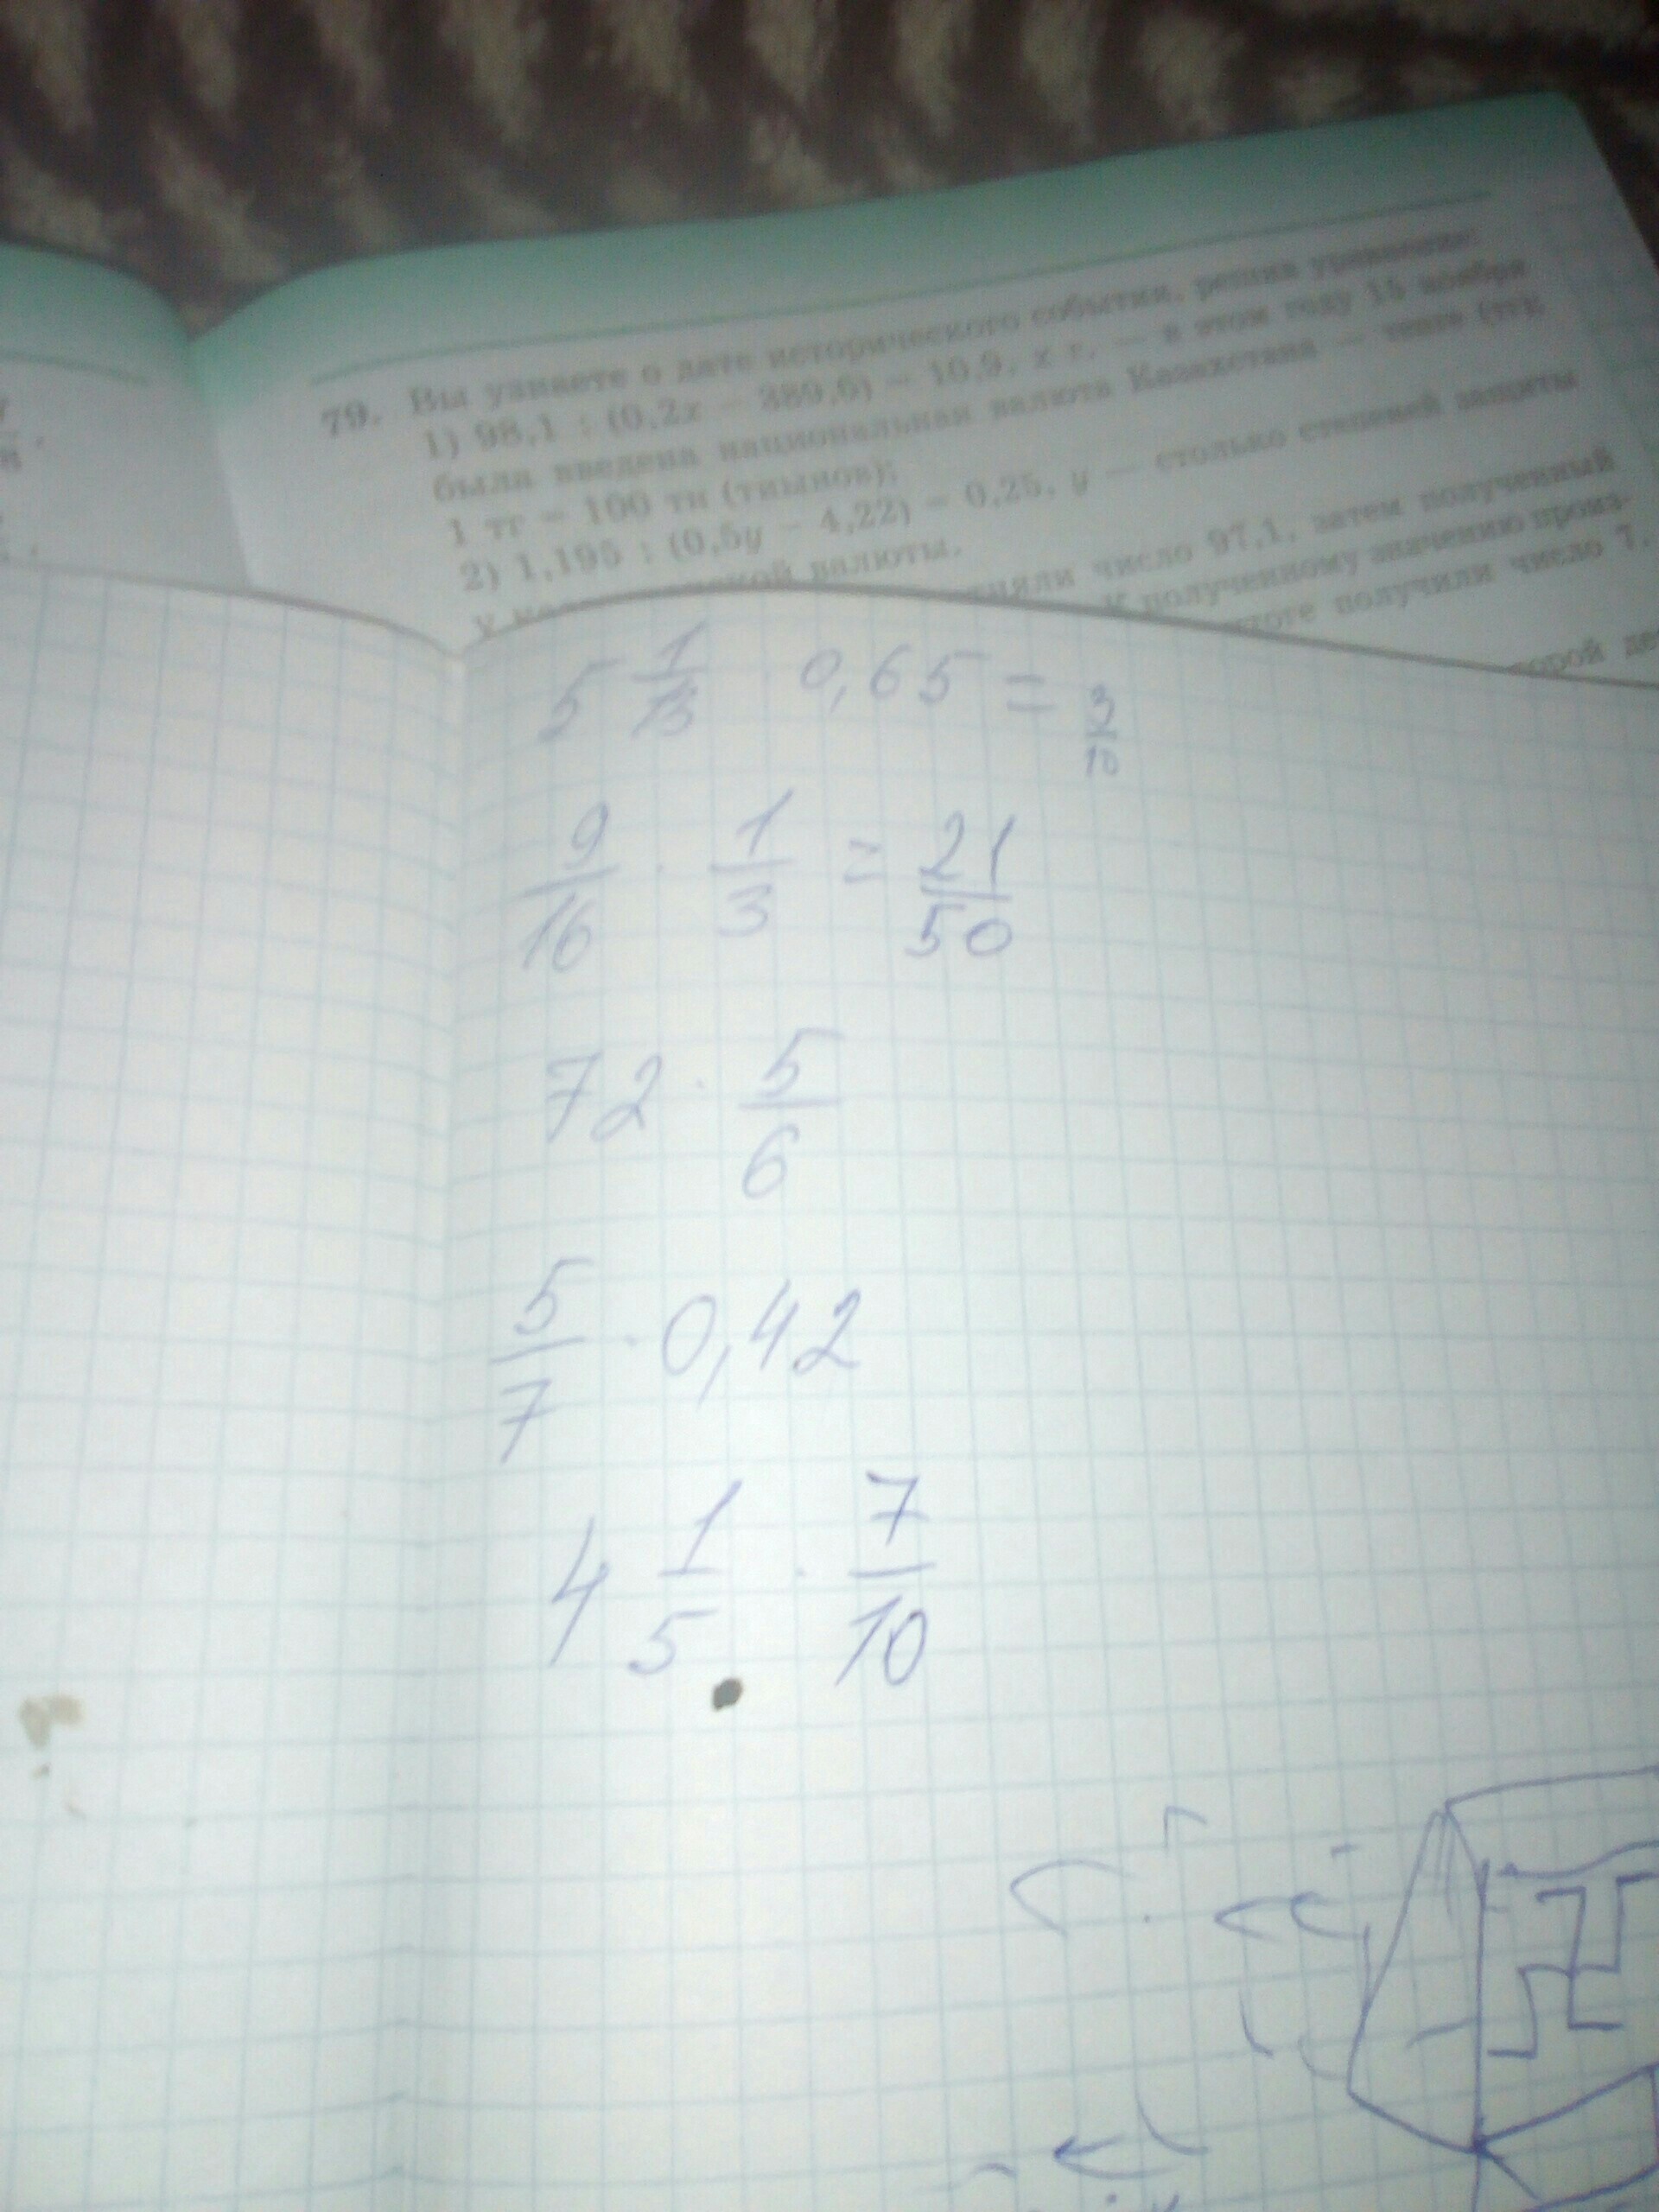 79. Вы узнаете о дате исторического события, решив уравнение:
1) 98,1 : (0,2x − 389,6) = 10,9, x г. — в этом году 15 ноября
была введена национальная валюта Казахстана — тенге (тг);
1 тг = 100 тн (тиынов);
2) 1,195 : (0,5y − 4,22) = 0,25, y — столько степеней защиты
у валюты.
число 97,1, затем полученный
К полученному значению произ-
получили число 7,
5 1/13 · 0,65 = 3/10
9/16 · 1/3 = 21/50
72 · 5/6
5/7 · 0,42
4 1/5 · 7/10